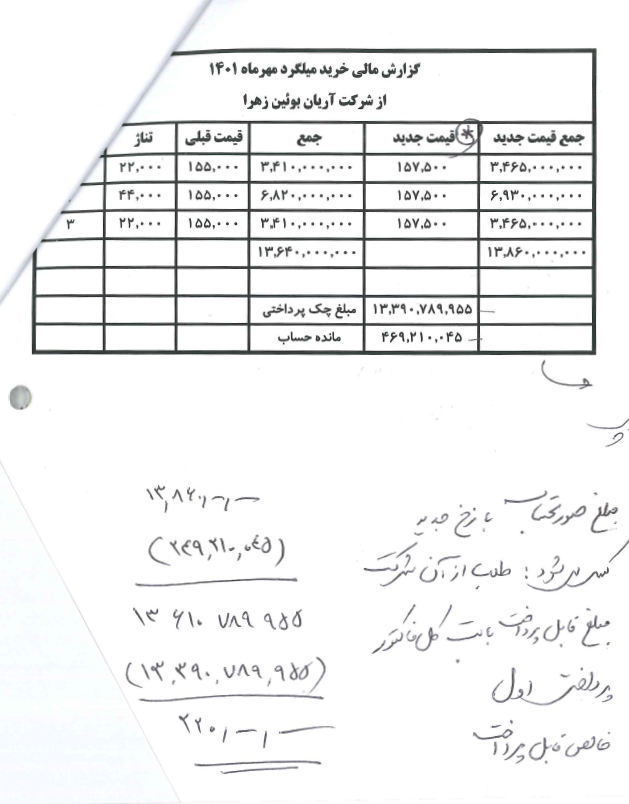 گزارش مالی خرید میلگرد مهرماه ۱۴۰۱
از شرکت آریان بوئین زهرا
تناژ قیمت قبلی جمع قیمت جدید * جمع قیمت جدید
۲۲,۰۰۰ ۱۵۵,۰۰۰ ۳,۴۱۰,۰۰۰,۰۰۰ ۱۵۷,۵۰۰ ۳,۴۶۵,۰۰۰,۰۰۰
۴۴,۰۰۰ ۱۵۵,۰۰۰ ۶,۸۲۰,۰۰۰,۰۰۰ ۱۵۷,۵۰۰ ۶,۹۳۰,۰۰۰,۰۰۰
۳ ۲۲,۰۰۰ ۱۵۵,۰۰۰ ۳,۴۱۰,۰۰۰,۰۰۰ ۱۵۷,۵۰۰ ۳,۴۶۵,۰۰۰,۰۰۰
۱۳,۶۴۰,۰۰۰,۰۰۰ ۱۳,۸۶۰,۰۰۰,۰۰۰
مبلغ چک پرداختی ۱۳,۳۹۰,۷۸۹,۹۵۵
مانده حساب ۴۶۹,۲۱۰,۰۴۵
مبلغ صورتحساب با نرخ جدید ۱۳,۸۶۰,-,-
کسر می شود: طلب از آن شرکت (۲۴۹,۲۱۰,۰۴۵)
مبلغ قابل پرداخت بابت کل فاکتور ۱۳ ۶۱۰ ۷۸۹ ۹۵۵
پرداخت اول (۱۳,۳۹۰,۷۸۹,۹۵۵)
خالص قابل پرداخت ۲۲۰,-,-